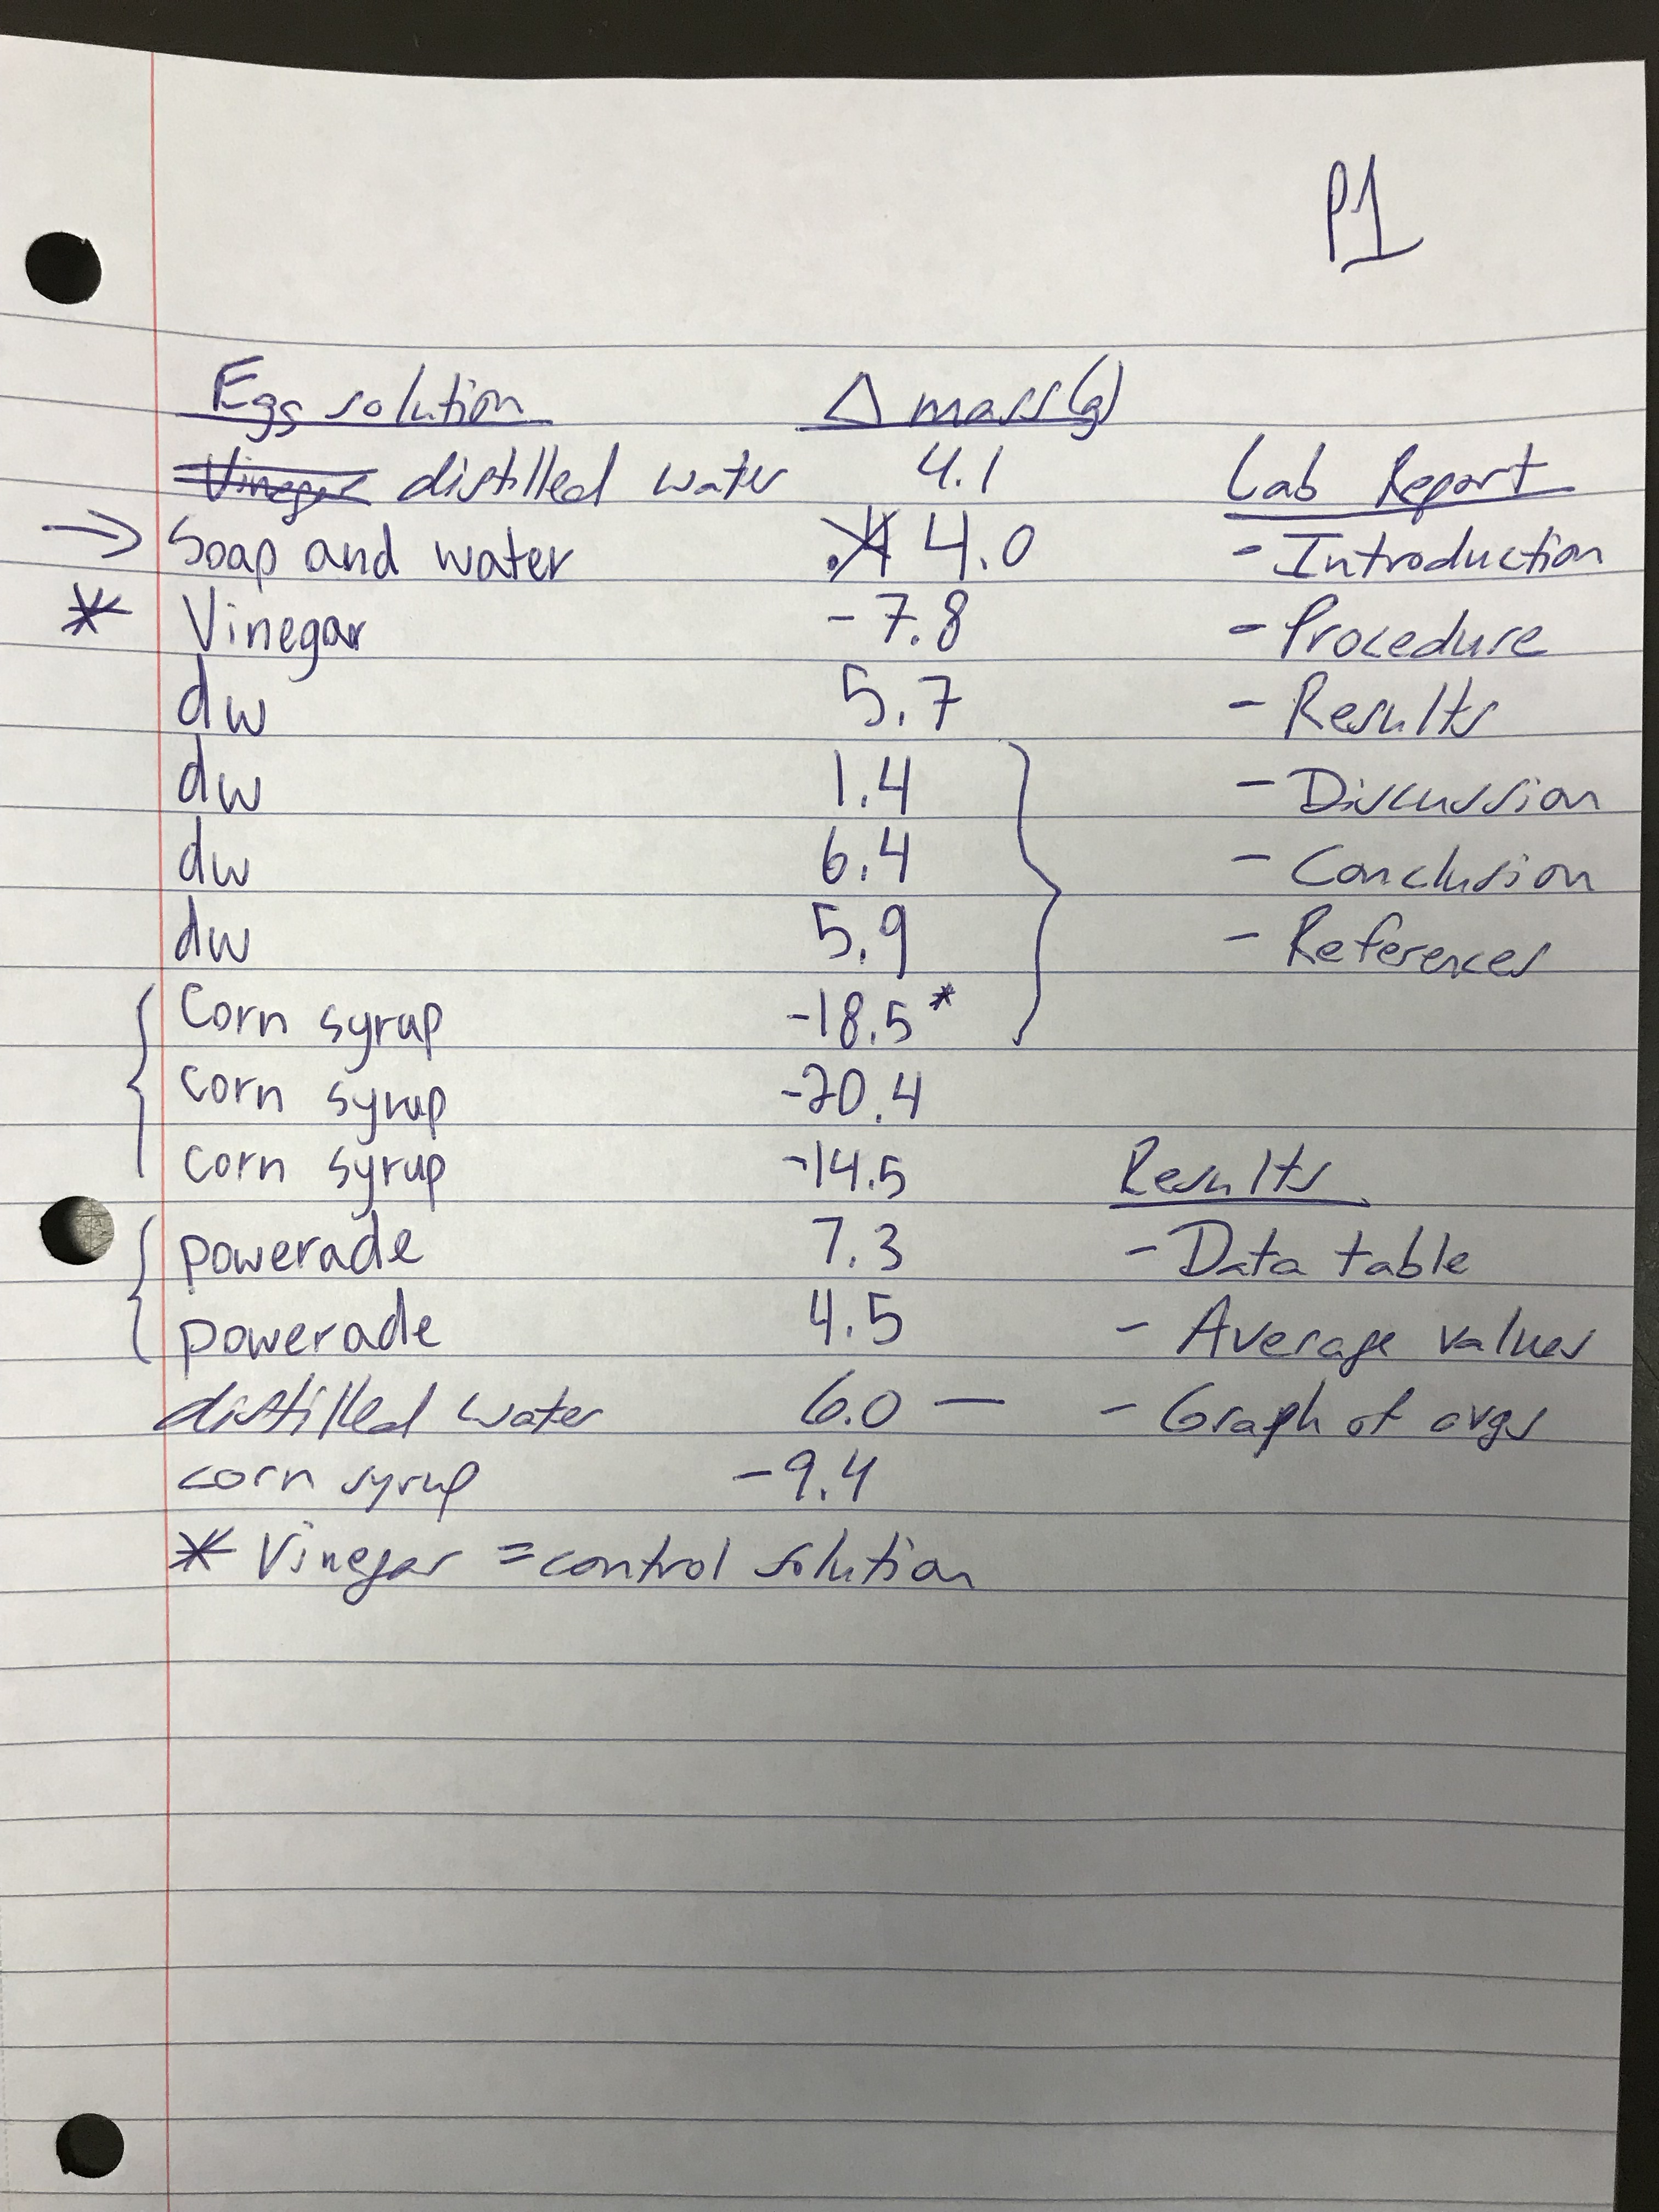 P1
Egg solution Δ mass(g)
Vinegar distilled water 4.1
→ Soap and water 4.0
* Vinegar -7.8
dw 5.7
dw 1.4
dw 6.4
dw 5.9
Corn syrup -18.5*
corn syrup -20.4
corn syrup -14.5
powerade 7.3
powerade 4.5
distilled water 6.0 —
corn syrup -9.4
* Vinegar = control solution
Lab Report
- Introduction
- Procedure
- Results
- Discussion
- Conclusion
- References
Results
- Data table
- Average values
- Graph of avgs